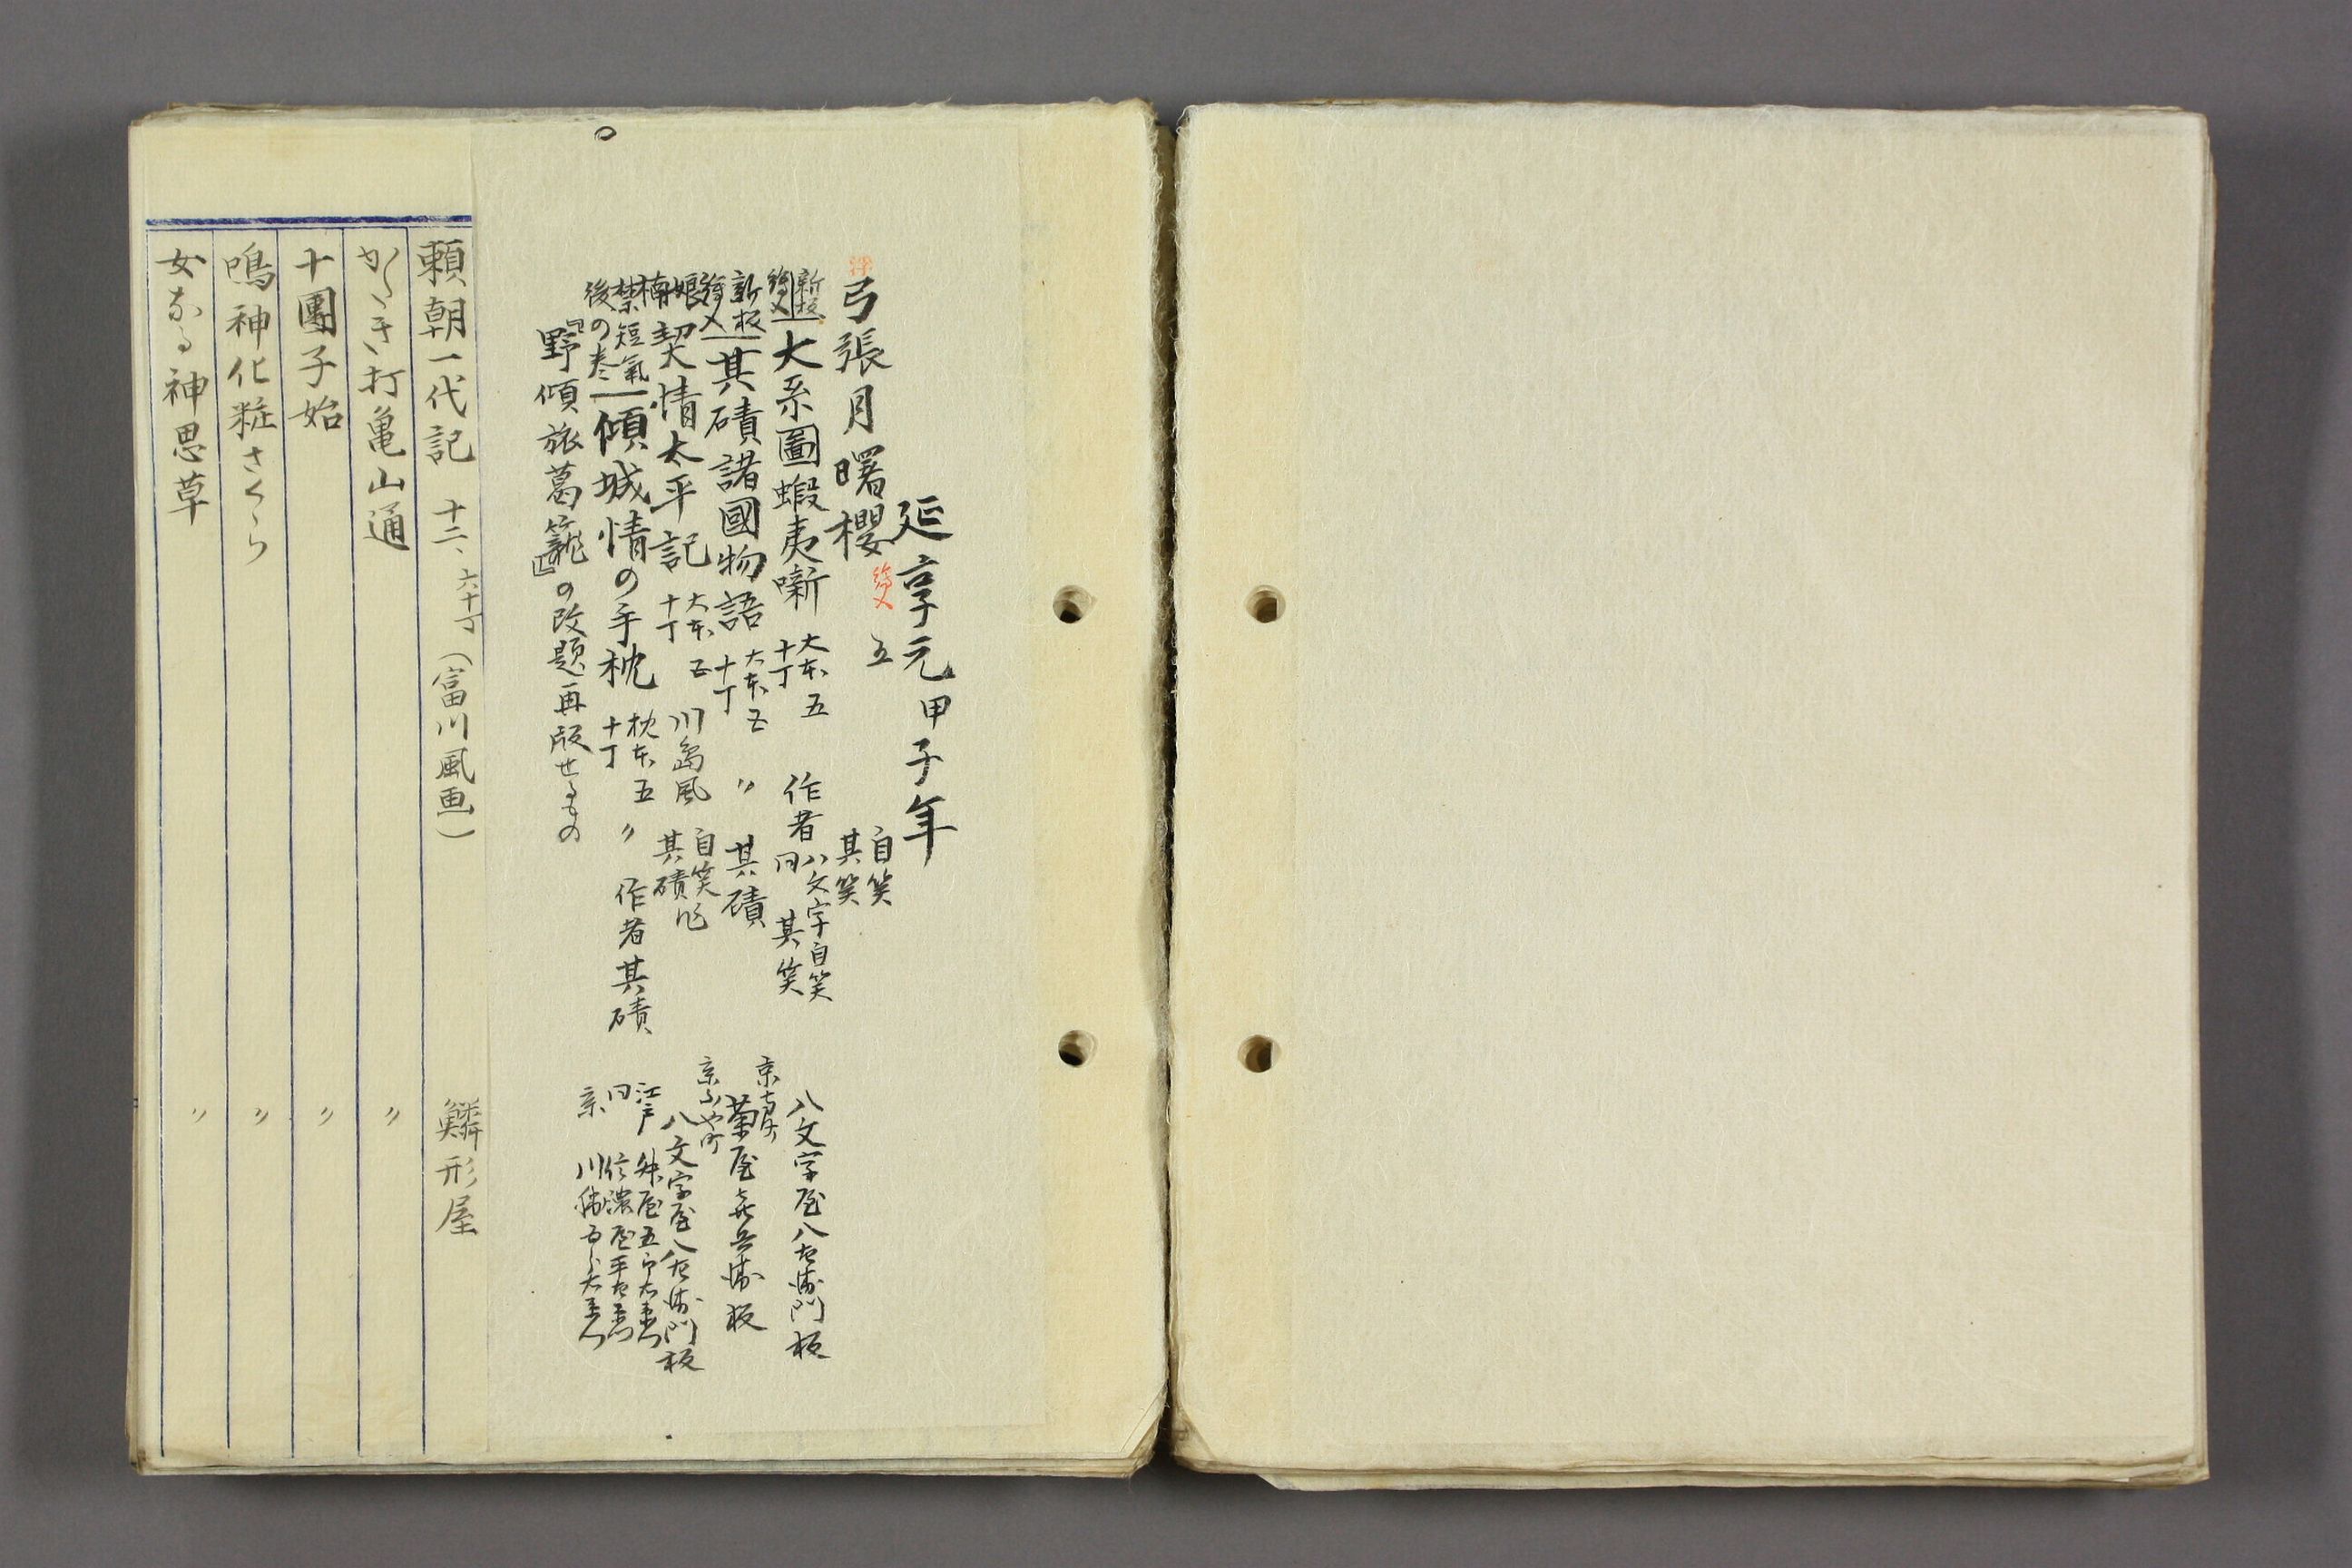 延享元甲子年
弓張月曙櫻 絵入 五 自笑 其笑
新板 絵入 大系圖蝦夷噺 大本五 十丁 作者 八文字自笑 同 其笑 八文字屋八左衛門板
新板 絵入 其磧諸國物語 大本五 十丁 〃 其磧 京 菊屋喜兵衛板
娘楠 契情太平記 大本五 十丁 川島風 自笑 其磧 作 京ふや町 八文字屋八左衛門板
禁短氣 後の巻 傾城情の手枕 枕本五 十丁 〃 作者其磧 江戸 同 信濃屋 京 川勝
『野傾旅葛籠』の改題再版せるもの
頼朝一代記 十二、六十丁 (富川風画) 鱗形屋
かたき打亀山通 〃
十團子始 〃
鳴神化粧さくら 〃
女なる神思草 〃